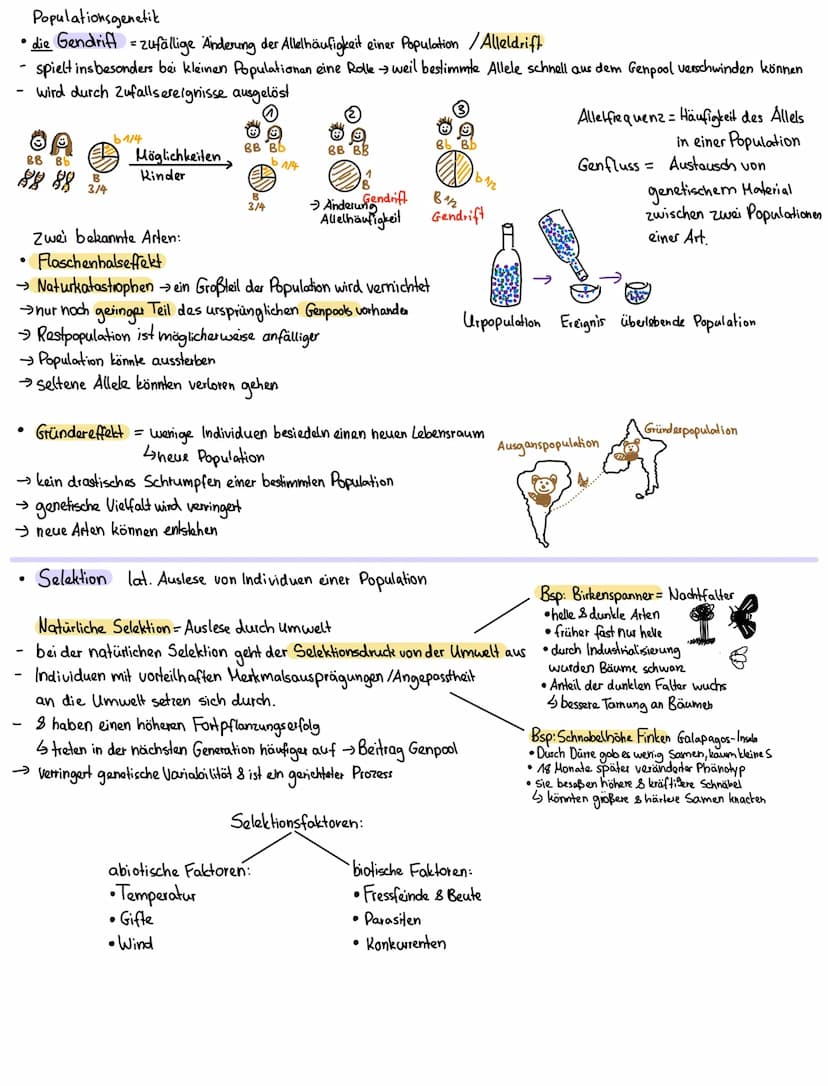 Populationsgenetik
• die Gendrift = zufällige Änderung der Allelhäufigkeit einer Population / Alleldrift
- spielt insbesonders bei kleinen Populationen eine Rolle → weil bestimmte Allele schnell aus dem Genpool verschwinden können
- wird durch Zufallsereignisse ausgelöst
BB Bb
b 1/4
B 3/4
Möglichkeiten
Kinder
①
BB Bb
b 1/4
B 3/4
②
BB BB
1 B
Gendrift
→ Änderung
Allelhäufigkeit
③
Bb Bb
b 1/2
B 1/2
Gendrift
Allelfrequenz = Häufigkeit des Allels
in einer Population
Genfluss = Austausch von
genetischem Material
zwischen zwei Populationen
einer Art.
Zwei bekannte Arten:
• Flaschenhalseffekt
→ Naturkatastrophen → ein Großteil der Population wird vernichtet
→ nur noch geringer Teil des ursprünglichen Genpools vorhanden
→ Restpopulation ist möglicherweise anfälliger
→ Population könnte aussterben
→ seltene Allele könnten verloren gehen
Urpopulation Ereignis überlebende Population
• Gründereffekt = wenige Individuen besiedeln einen neuen Lebensraum
↳ neue Population
→ kein drastisches Schrumpfen einer bestimmten Population
→ genetische Vielfalt wird verringert
→ neue Arten können entstehen
Ausganspopulation
Gründerpopulation
• Selektion lat. Auslese von Individuen einer Population
Natürliche Selektion = Auslese durch Umwelt
- bei der natürlichen Selektion geht der Selektionsdruck von der Umwelt aus
- Individuen mit vorteilhaften Merkmalsausprägungen / Angepasstheit
an die Umwelt setzen sich durch.
- & haben einen höheren Fortpflanzungserfolg
↳ treten in der nächsten Generation häufiger auf → Beitrag Genpool
→ verringert genetische Variabilität & ist ein gerichteter Prozess
Bsp: Birkenspanner = Nachtfalter
• helle & dunkle Arten
• früher fast nur helle
• durch Industrialisierung
wurden Bäume schwarz
• Anteil der dunklen Falter wuchs
↳ bessere Tarnung an Bäumen
Bsp: Schnabelhöhe Finken Galapagos-Inseln
• Durch Dürre gab es wenig Samen, kaum kleine S
• 18 Monate später veränderter Phänotyp
• Sie besaßen höhere & kräftigere Schnäbel
↳ könnten größere & härtere Samen knacken
Selektionsfaktoren:
abiotische Faktoren:
• Temperatur
• Gifte
• Wind
biotische Faktoren:
• Fressfeinde & Beute
• Parasiten
• Konkurrenten